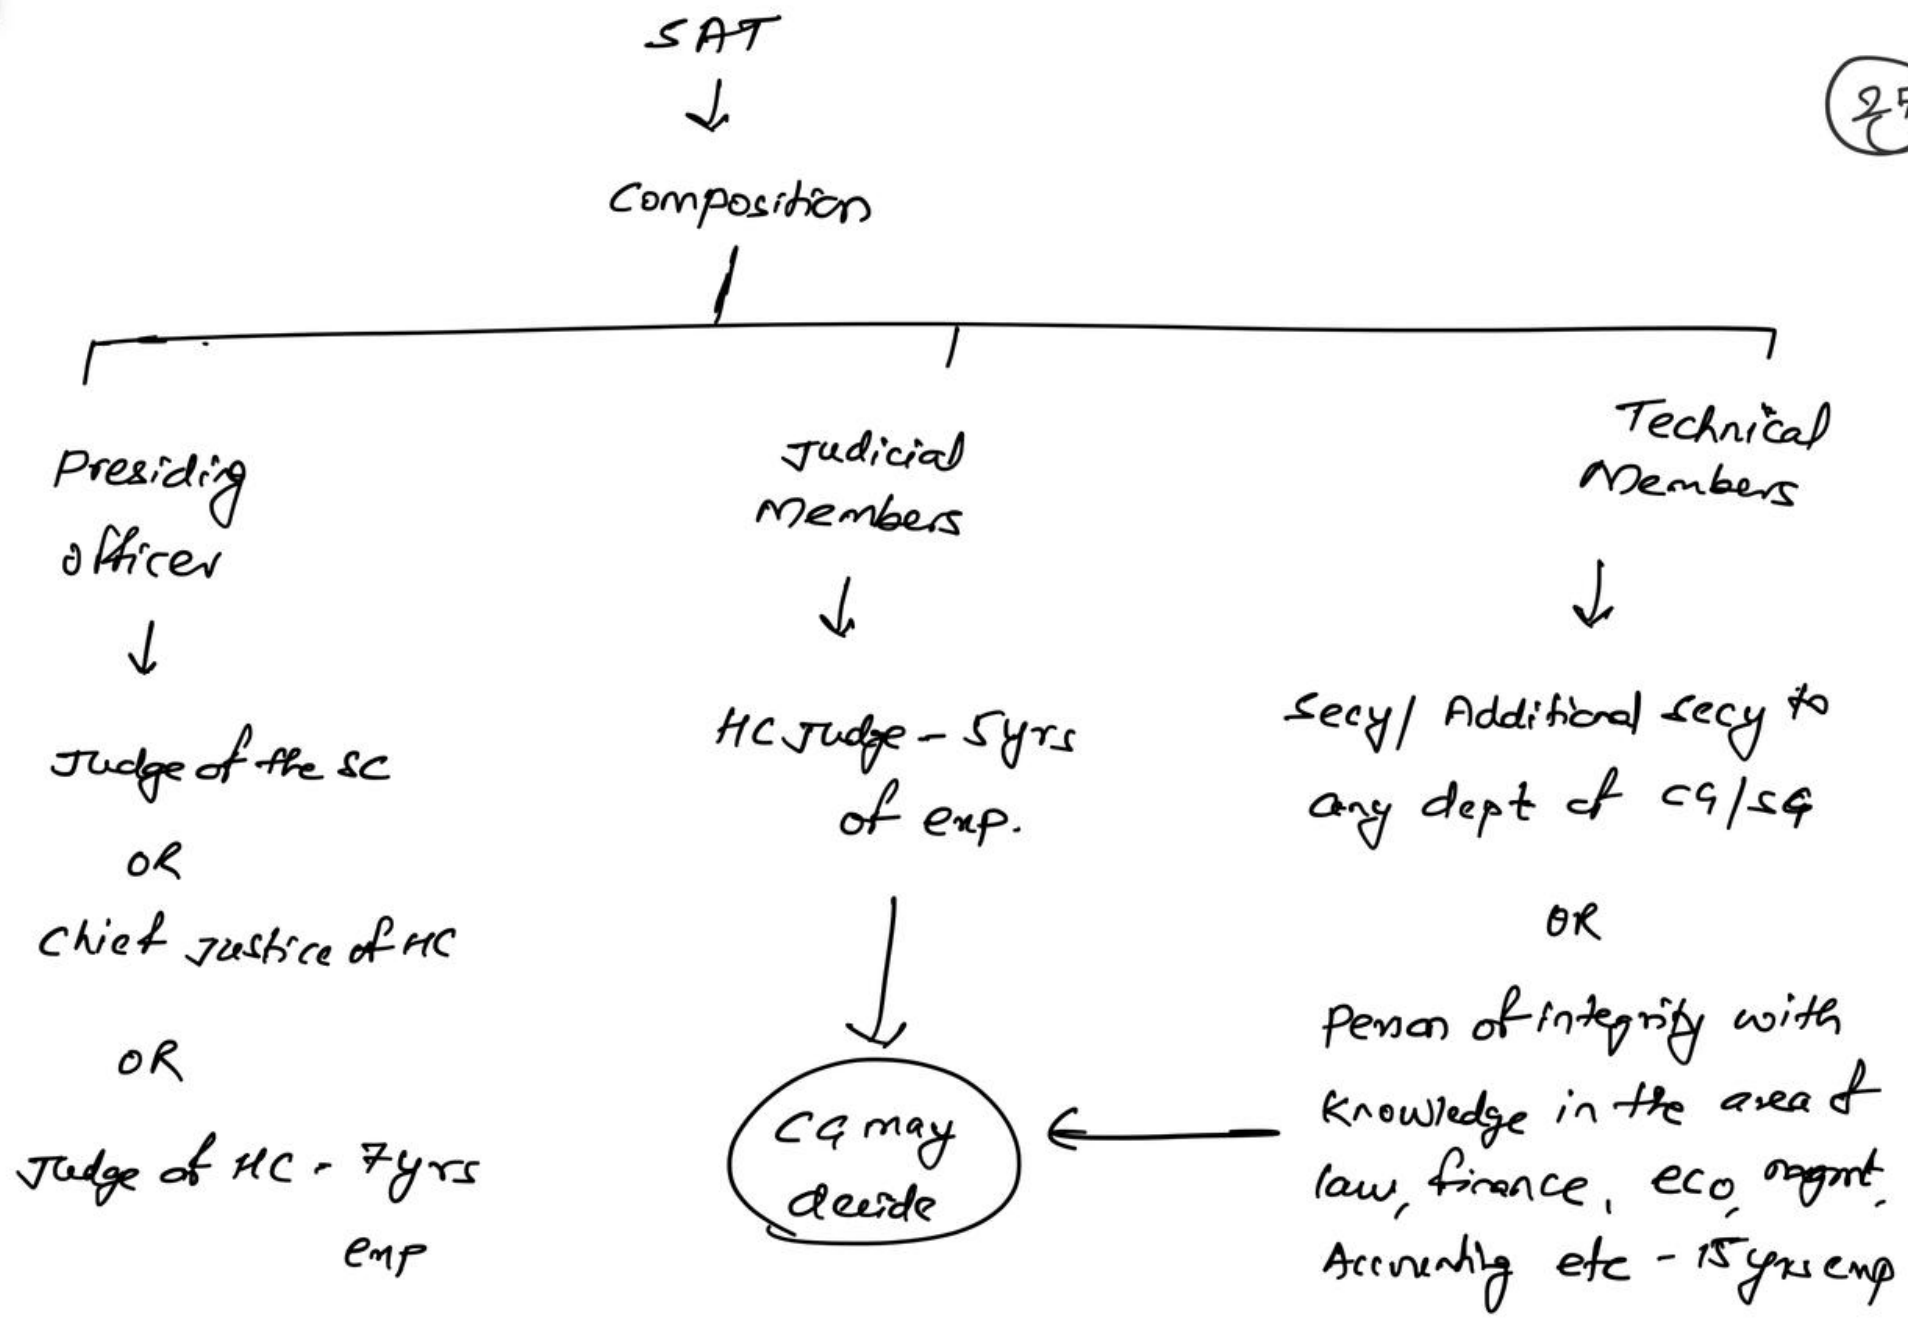 SAT
Composition
Presiding
officer
Judge of the SC
OR
Chief Justice of HC
OR
Judge of HC - 7yrs
exp
Judicial
Members
HC Judge - 5yrs
of exp.
CG may
decide
Technical
Members
Secy/ Additional Secy to
any dept of CG/SG
OR
Person of integrity with
Knowledge in the area of
law, finance, eco, mgmt,
Accounting etc - 15 yrs exp